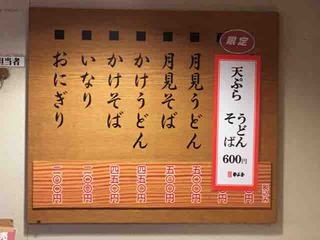 限定
天ぷら
うどん
そば
600円
月見うどん
五〇〇円
月見そば
五〇〇円
かけうどん
四五〇円
かけそば
四五〇円
いなり
二〇〇円
おにぎり
二〇〇円
担当者